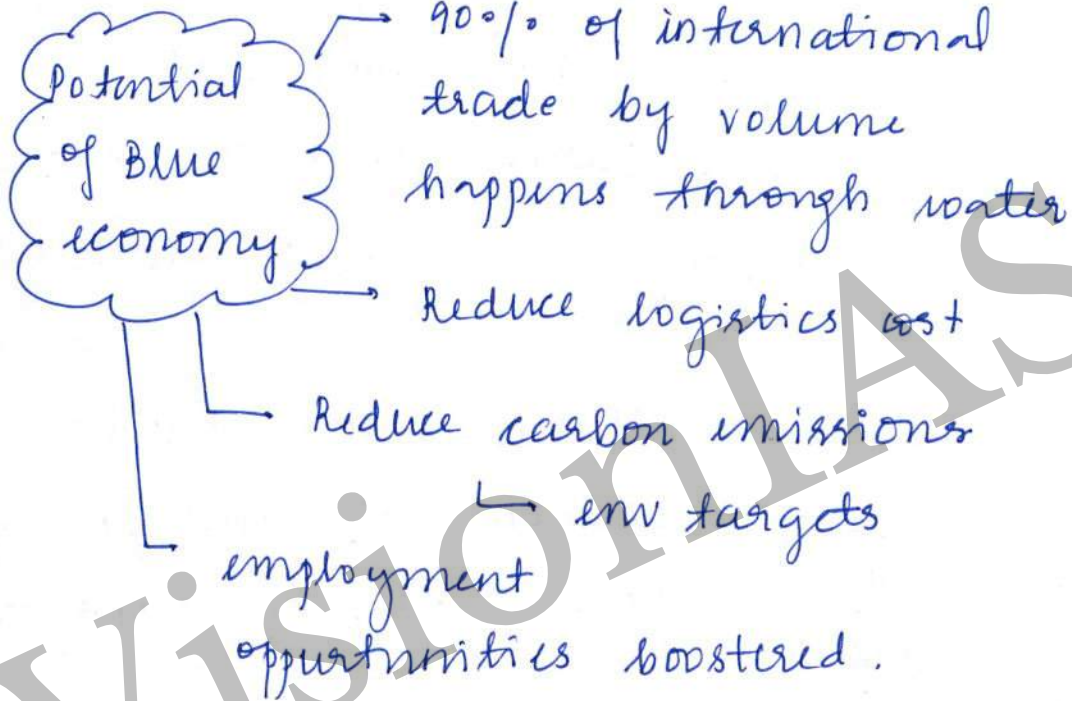 Potential
of Blue
economy
90% of international
trade by volume
happens through water
Reduce logistics cost
Reduce carbon emissions
env targets
employment
oppurtunities boostered.
VisionIAS